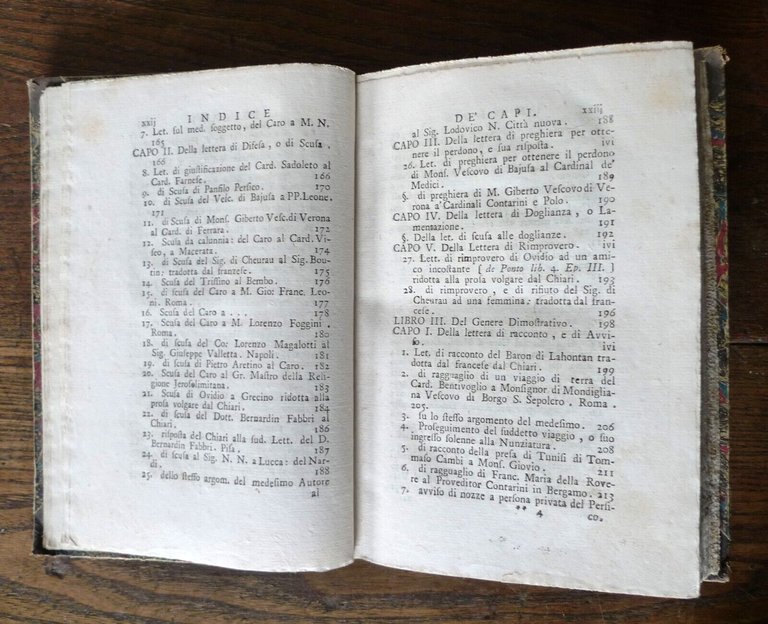 xxij INDICE
7. Let. sul med. soggetto, del Caro a M. N.
165
CAPO II. Della lettera di Difesa, o di Scusa.
166
8. Let. di giustificazione del Card. Sadoleto al
Card. Farnese. 166
9. di Scusa di Panfilo Persico. 170
10. di Scusa del Vesc. di Bajusa a PP. Leone.
171
11. di Scusa di Mons. Giberto Vesc. di Verona
al Card. di Ferrara. 172
12. Scusa da calunnia: del Caro al Card. Vi-
seo, a Macerata. 174
13. di Scusa del Sig. di Cheurau al Sig. Bou-
tin: tradotta dal franzese. 175
14. Scusa del Trissino al Bembo. 176
15. di scusa del Caro a M. Gio: Franc. Leo-
ni. Roma. 177
16. Scusa del Caro a . . . 178
17. Scusa del Caro a M. Lorenzo Foggini.
Roma. 180
18. di scusa del Co: Lorenzo Magalotti al
Sig. Giuseppe Valletta. Napoli. 181
19. di scusa di Pietro Aretino al Caro. 182
20. Scusa del Caro al Gr. Mastro della Re-
ligione Jerosolimitana. 183
21. Scusa di Ovidio a Grecino ridotta alla
prosa volgare dal Chiari. 184
22. di scusa del Dott. Bernardin Fabbri al
Chiari. 186
23. risposta del Chiari alla sud. Lett. del D.
Bernardin Fabbri. Pisa. 187
24. di scusa al Sig. N. N. a Lucca: del Nar-
di. 188
25. dello stesso argom. del medesimo Autore
al
DE' CAPI. xxiij
al Sig. Lodovico N. Città nuova. 188
CAPO III. Della lettera di preghiera per otte-
nere il perdono, e sua risposta. ivi
26. Let. di preghiera per ottenere il perdono
di Mons. Vescovo di Bajusa al Cardinal de'
Medici. 189
§. di preghiera di M. Giberto Vescovo di Ve-
rona a' Cardinali Contarini e Polo. 190
CAPO IV. Della lettera di Doglianza, o La-
mentazione. 191
§. Della let. di scusa alle doglianze. 192
CAPO V. Della Lettera di Rimprovero. ivi
27. Lett. di rimprovero di Ovidio ad un ami-
co incostante [ de Ponto lib. 4. Ep. III. ]
ridotta alla prosa volgare dal Chiari. 193
28. di rimprovero, e di rifiuto del Sig. di
Cheurau ad una femmina: tradotta dal fran-
cese. 196
LIBRO III. Del Genere Dimostrativo. 198
CAPO I. Della lettera di racconto, e di Avvi-
so. ivi
1. Let. di racconto del Baron di Lahontan tra-
dotta dal francese dal Chiari. 199
2. di ragguaglio di un viaggio di terra del
Card. Bentivoglio a Monsignor di Modiglia-
na Vescovo di Borgo S. Sepolcro. Roma.
205.
3. su lo stesso argomento del medesimo. 206
4. Proseguimento del suddetto viaggio, o suo
ingresso solenne alla Nunziatura. 208
5. di racconto della presa di Tunisi di Tom-
maso Cambi a Mons. Giovio. 211
6. di ragguaglio di Franc. Maria della Rove-
re al Proveditor Contarini in Bergamo. 213
7. avviso di nozze a persona privata del Persi-
** 4 co.